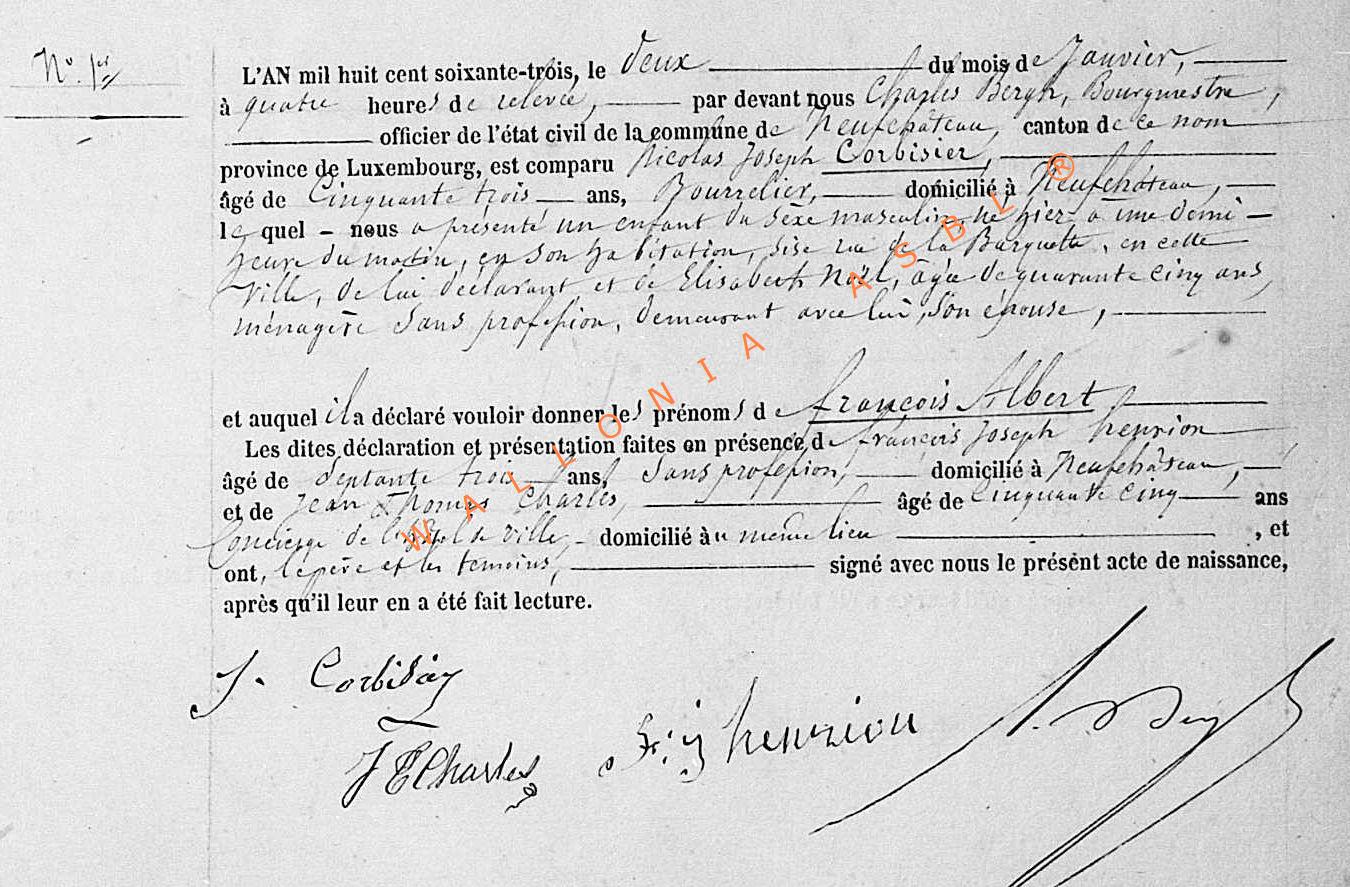 N° 1er
L'AN mil huit cent soixante-trois, le deux du mois de Janvier,
à quatre heures de relevée, par devant nous Charles Bergh, Bourgmestre,
officier de l'état civil de la commune de Neufchâteau, canton de ce nom
province de Luxembourg, est comparu Nicolas Joseph Corbisier,
âgé de Cinquante trois ans, Bourrelier, domicilié à Neufchâteau,
le quel - nous a présenté un enfant du sexe masculin, né hier à une demi -
heure du matin, en son habitation, sise rue de la Barquette, en cette
Ville, de lui déclarant et de Elisabeth Noël, âgée de quarante cinq ans,
ménagère sans profession, demeurant avec lui, son épouse,
et auquel il a déclaré vouloir donner les prénoms de françois Albert
Les dites déclaration et présentation faites en présence de françois Joseph henrion
âgé de Septante trois ans, Sans profession, domicilié à Neufchâteau,
et de Jean Thomas Charles, âgé de Cinquante cinq ans
Concierge de l'hôtel de Ville, - domicilié au même lieu , et
ont, le père et les témoins, signé avec nous le présent acte de naissance,
après qu'il leur en a été fait lecture.
J. Corbisier
J T Charles
henrion
WALLONIA ASBL ®